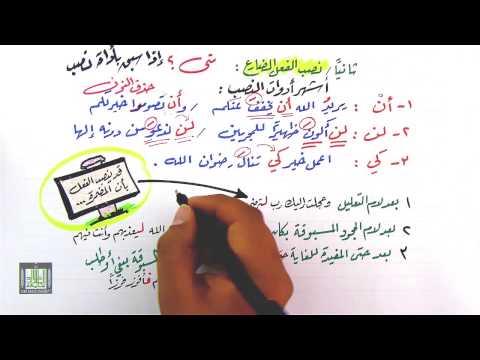 ثانيًا: نصب الفعل المضارع: متى؟ إذا سبق بأداة نصب
أشهر أدوات النصب: حذف النون
١- أنْ: يريد الله أن يخفف عنكم / وأن تصوموا خير لكم
٢- لن: لن أكون ظهيرًا للمجرمين / لن ندعو من دونه إلها
٣- كي: اعمل خير كي تنال رضوان الله.
قد ينصب الفعل
بأن المضمرة...
١ بعد لام التعليل وعجلت إليك رب لترضى
٢ بعد لام الجحود المسبوقة بكان الله ليعذبهم وأنت فيهم
٣ بعد حتى المفيدة للغاية المسبوقة بنفي أو طلب
فأفوز فوزًا